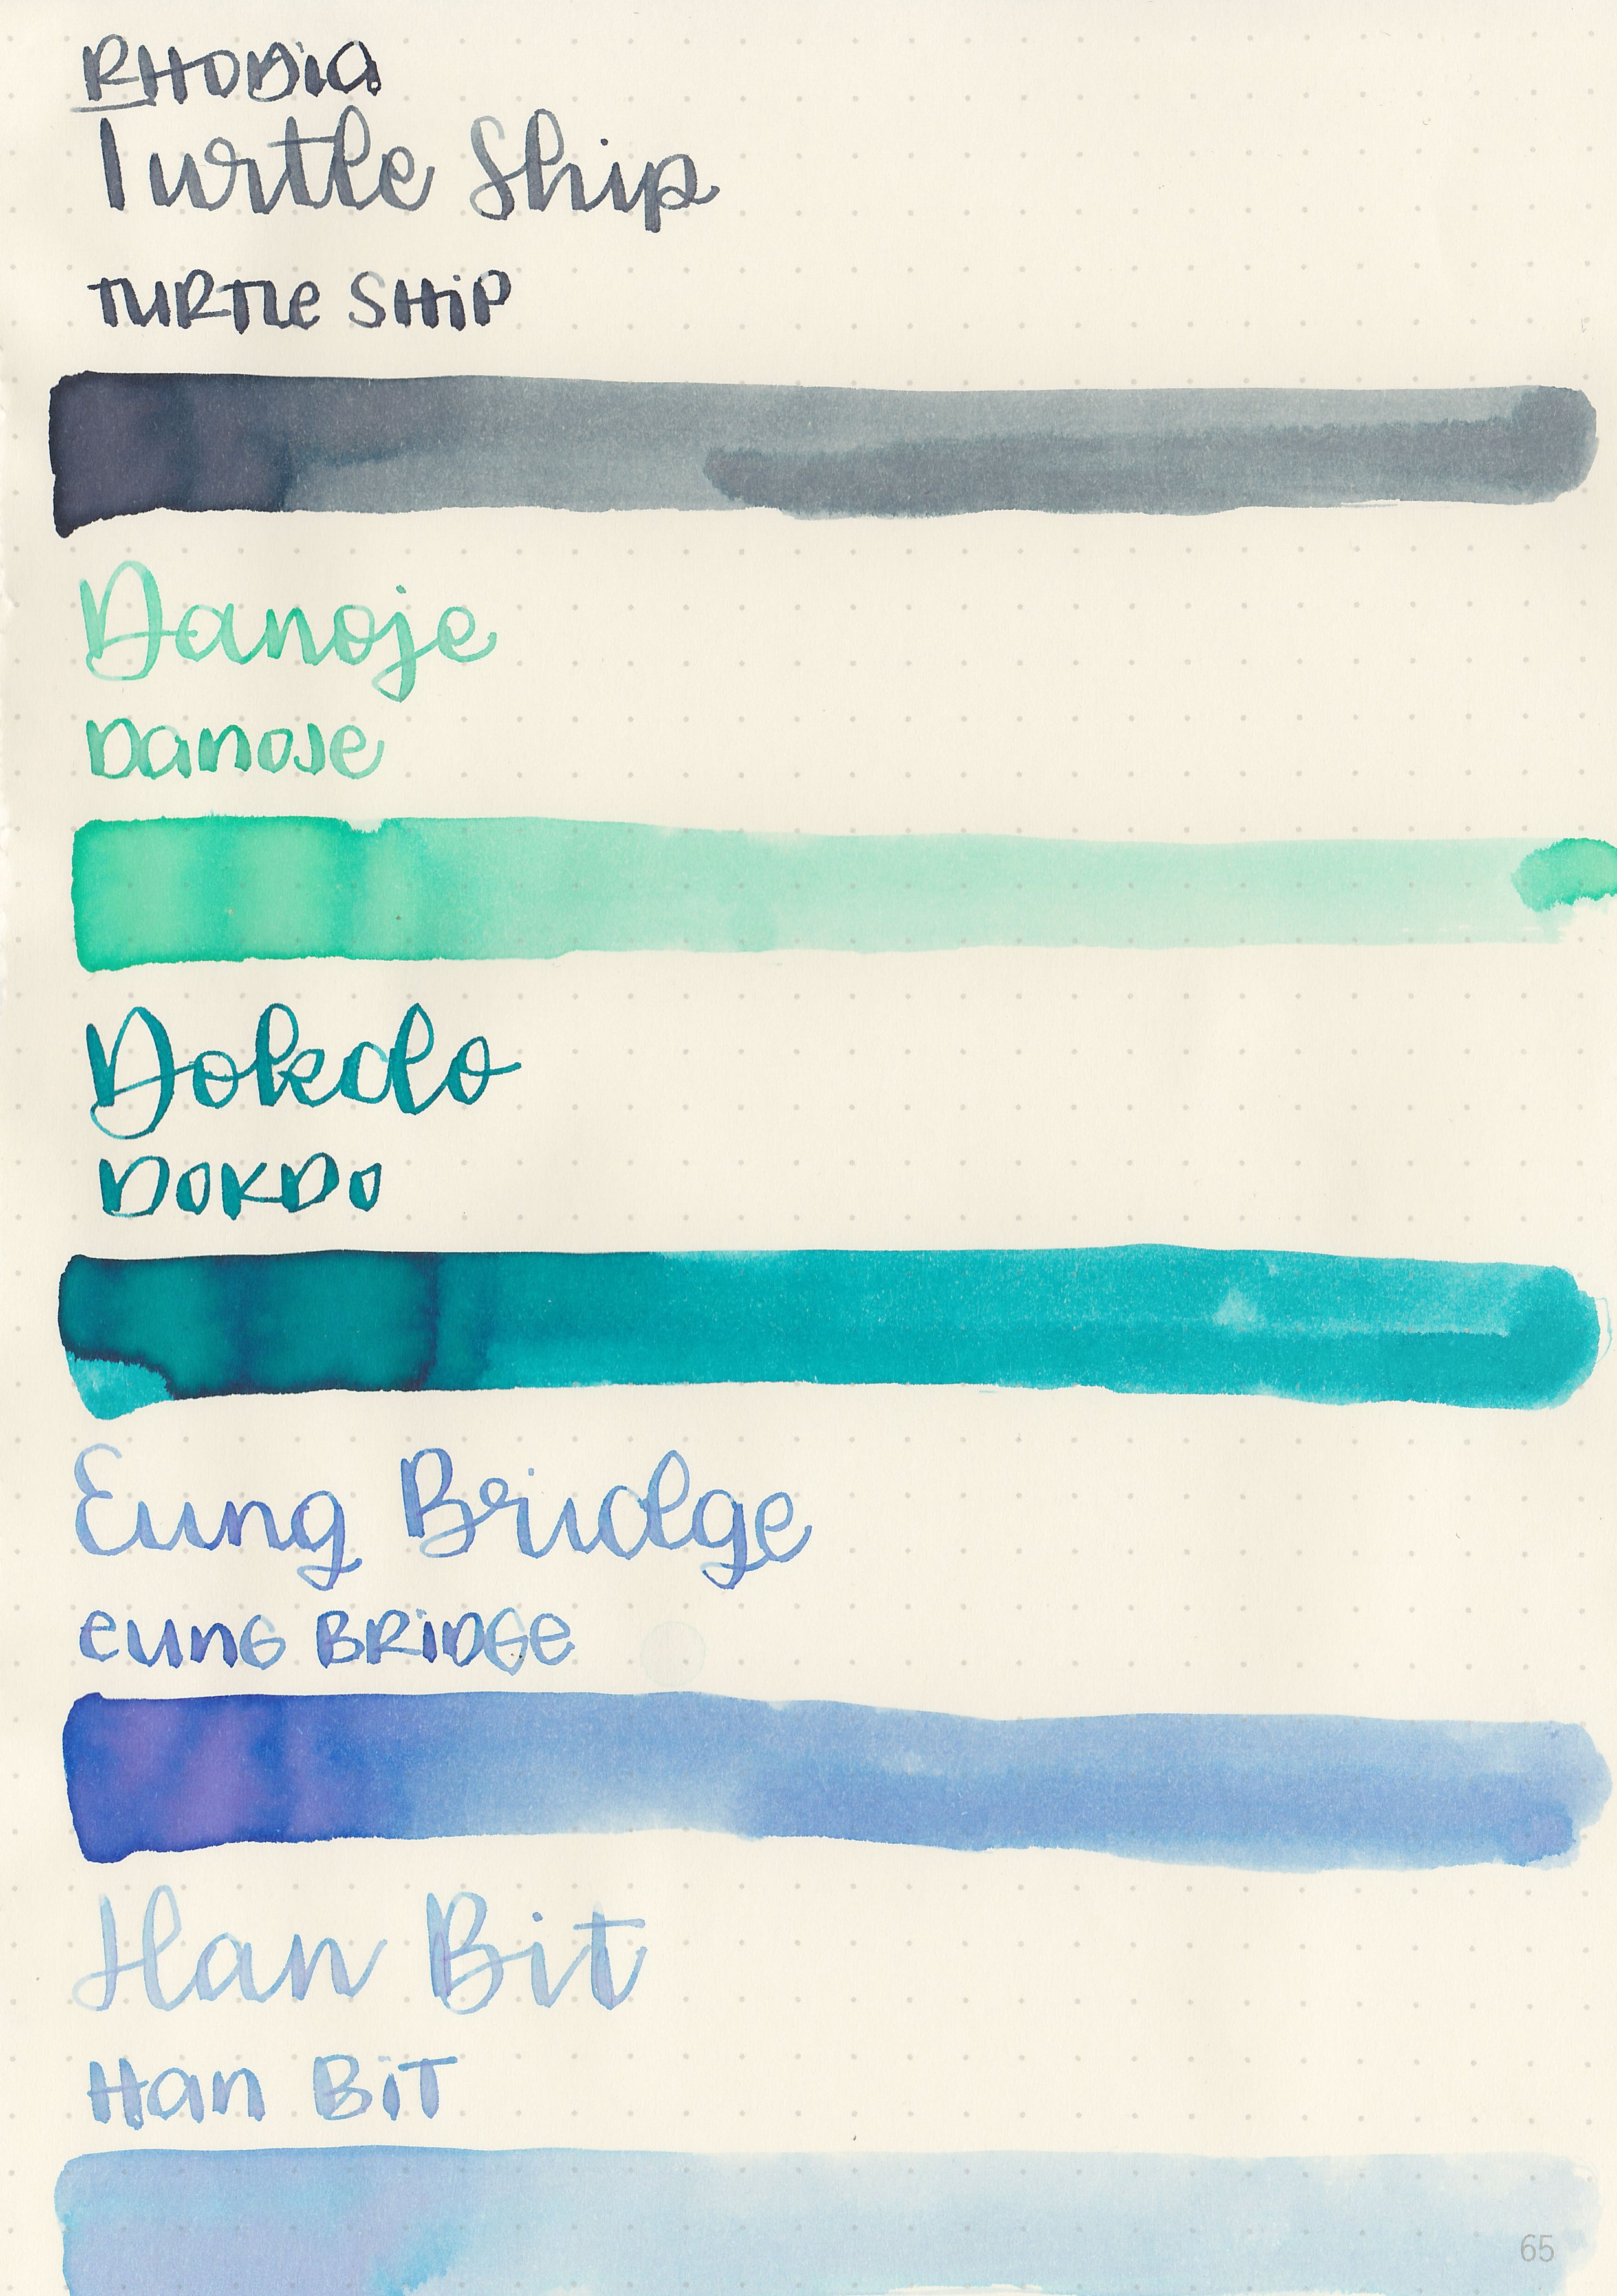 RHODIA
Turtle Ship
TURTLe SHiP
Danoje
DanoJe
Dokdo
DOKDO
Eung Bridge
eunG BRiDGe
Han Bit
Han BiT
65